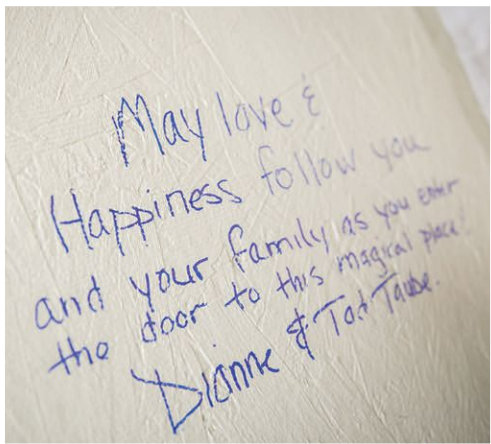 May love &
Happiness follow you
and your family as you enter
the door to this magical place!
Dianne & Tod Taube.